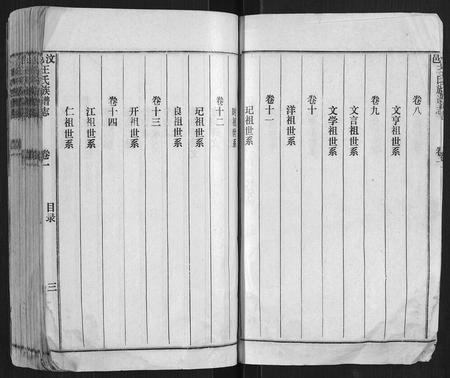 卷八
文亨祖世系
卷九
文言祖世系
文学祖世系
卷十
洋祖世系
卷十一
玘祖世系
卷十二
玘祖世系
良祖世系
卷十三
开祖世系
卷十四
江祖世系
仁祖世系
汶邑王氏族谱志 卷一 目录 三